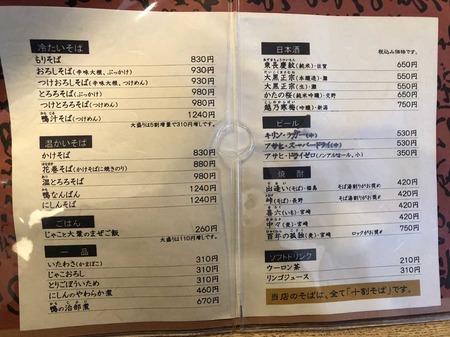 冷たいそば
もりそば 830円
おろしそば(辛味大根、ぶっかけ) 930円
つけおろしそば(辛味大根、つけめん) 930円
とろろそば(ぶっかけ) 930円
つけとろろそば(つけめん) 930円
鴨汁そば(つけめん) 1240円
大盛りは5割増量で310円増しです。
温かいそば
かけそば 830円
花巻そば(かけそばに焼きのり) 880円
温とろろそば 930円
鴨なんばん 1240円
にしんそば 1240円
ごはん
じゃこと大葉のまぜご飯 260円
大盛りは110円増しです。
一品
いたわさ(かまぼこ) 310円
じゃこおろし 310円
とりごぼういため 310円
にしんのやわらか煮 460円
鴨の治部煮 670円
日本酒
税込み価格です。
東長慶紋(純米)・佐賀 650円
大黒正宗(本醸造)・灘 550円
大黒正宗(生)・灘 550円
かたの桜(純米吟醸)・交野 650円
越乃寒梅(吟醸)・新潟 750円
ビール
キリン・ラガー(中) 530円
アサヒ・スーパードライ(中) 530円
アサヒ・ドライゼロ(ノンアルコール、小) 350円
焼酎
出逢い(そば)・福島 そば湯割りがお奨め 420円
峠(そば)・長野 そば湯割りがお奨め 420円
喜六(いも)・宮崎 420円
中々(麦)・宮崎 420円
百年の孤独(麦)・宮崎 ロックがお奨め 750円
ソフトドリンク
ウーロン茶 210円
リンゴジュース 310円
当店のそばは、全て「十割そば」です。